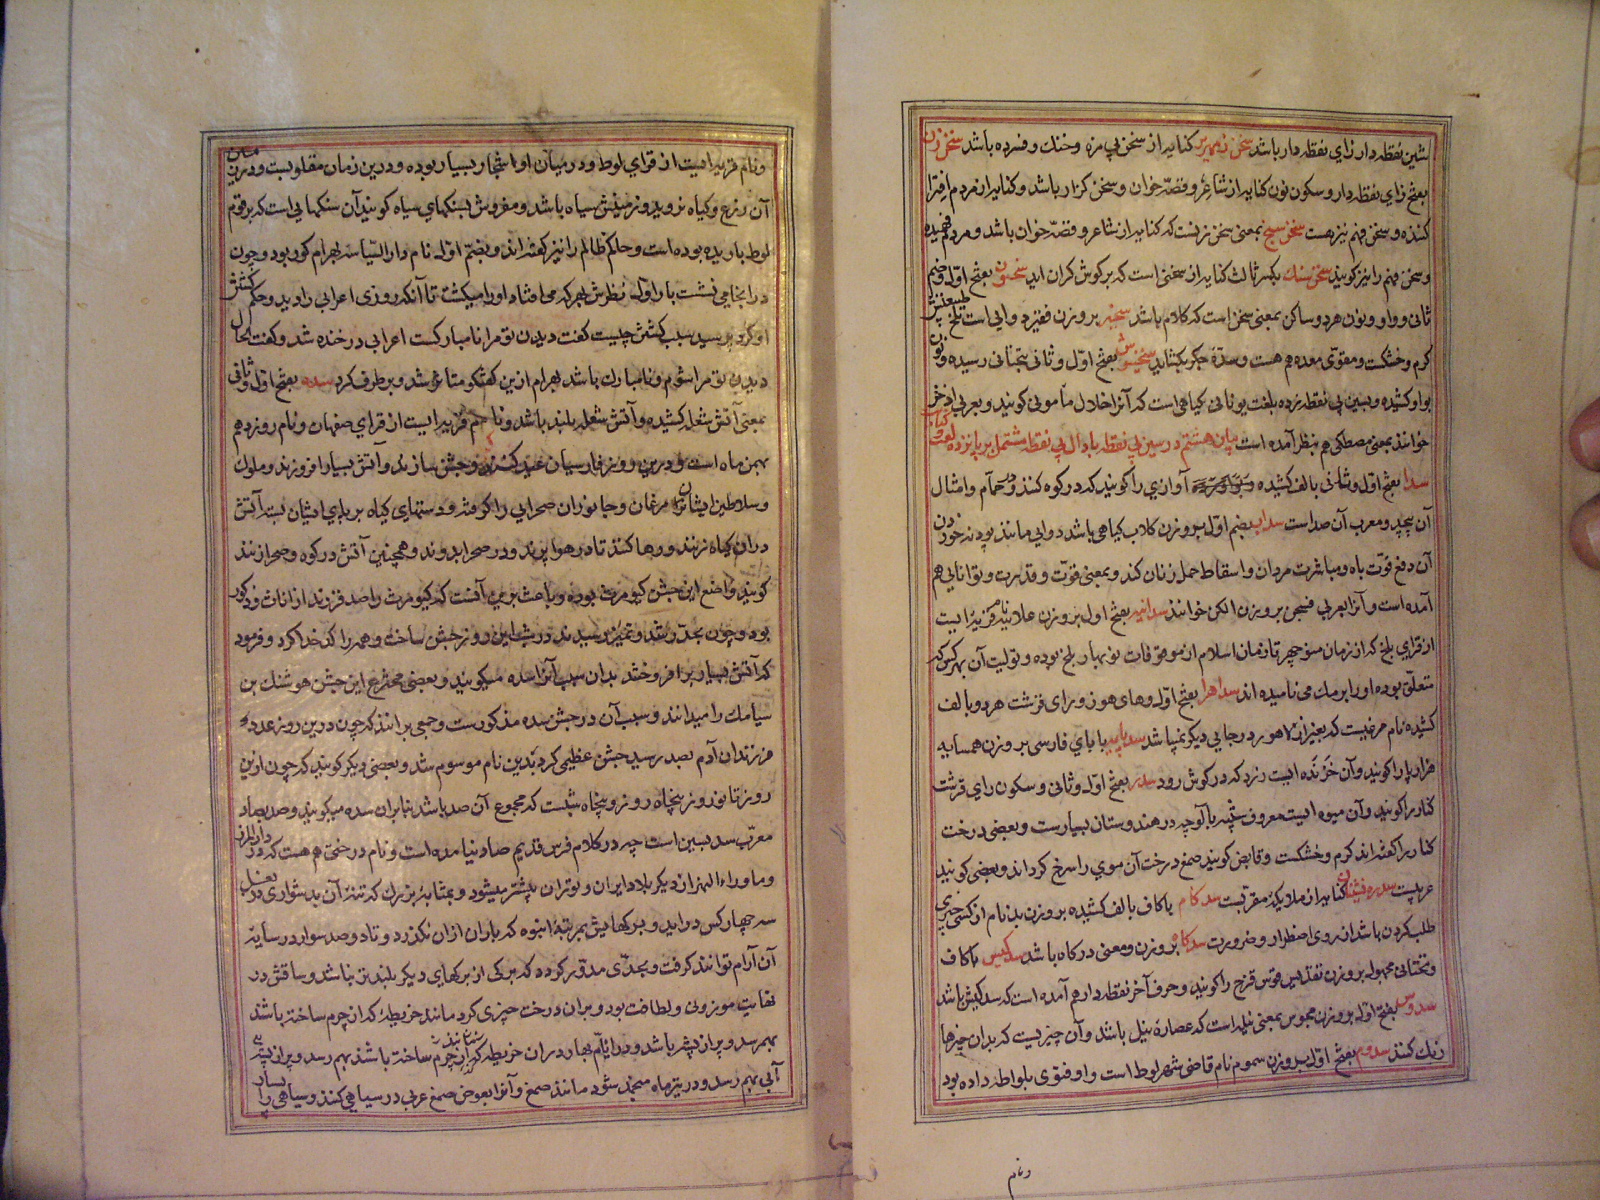 لشین نقطه دار زای نقطه دار باشد سخن زمهریر کنایه از سخن بی مزه و خنك و فسرده باشد سخن زن
بفتح زای نقطه دار و سکون نون کنایه از شاعر و قصّه خوان و سخن گزار باشد و کنایه از مردم افترا
کننده و سخن فهم نیز هست سخن سنج بمعنی سخن زنست که کنایه از شاعر و قصّه خوان باشد و مردم فهمیده
و سخن فهم را نیز گویند سخن سنك بکسر ثالث کنایه از سخنی است که بر گوش گران اید سخون بفتح اوّل و ضم
ثانی و واو و نون هر دو ساکن بمعنی سخن است که کلام باشد بر وزن دوایی است تلخ طبیعتش
گرم و خشکست و مقوّی معده هم هست و سدّهٔ جگر بکشاید سخینوش بفتح اوّل و ثانی بتحتانی رسیده و نون
بواو کشیده و بسین بی نقطه زده بلغت یونانی گیاهی است که آنرا خلال مأمونی گویند و بعربی اذخر
خوانند بمعنی مصطکی هم بنظر آمده است بیان هشتم در سین بی نقطه با دال بی نقطه مشتمل بر پانزده لغت و کنایت
سدا بفتح اوّل و ثانی بالف کشیده آوازی را گویند که در کوه و گنبد و حمّام و امثال
آن پیچد و معرب آن صداست سداب بضم اوّل بر وزن گلاب گیاهی باشد دوایی مانند پودنه خوردن
آن دفع قوّت باه و مباشرت مردان و اسقاط حمل زنان کند و بمعنی قوّت و قدرت و توانائی هم
آمده است و آنرا بعربی فیجن بر وزن الکن خوانند سدانه بفتح اول بر وزن علانیه نام قریه ایست
از قرای بلخ که از زمان منوچهر تا زمان اسلام از موقوفات نوبهار بلخ بوده و تولیت آن بهر کس که
متعلّق بوده او را برمك می نامیده اند سداهرا بفتح اوّل و های هوز و رای قرشت هر دو بالف
کشیده نام مرغیست که بغیر از لاهور در جایی دیگر نمیباشد سدپایه با بای فارسی بر وزن همسایه
هزارپا را گویند و آن خزنده ایست زرد که در گوش رود سدر بفتح اوّل و ثانی و سکون رای قرشت
کنار را گویند و آن میوه ایست معروف شبیه بآلوچه در هندوستان بسیارست و بعضی درخت
کنار را گفته اند گرم و خشکست و قابض گویند صمغ درخت آن موی را سرخ گرداند و بعضی گویند
عربیست سدره نشینان کنایه از ملایکهٔ مقرّبست سدکام با کاف بالف کشیده بر وزن بدنام از کسی چیزی
طلب کردن باشد از روی اضطرار و ضرورت سدکاه بر وزن و معنی درگاه باشد سدکیس با کاف
و تحتانی مجهول بر وزن تقدیس قوس قزح را گویند و حرف آخر نقطه دار هم آمده است که سدکیش باشد
سدوس بفتح اوّل بر وزن مجوس بمعنی نیله است که عصارهٔ نیل باشد و آن چیزیست که بدان چیزها
رنك کنند سدوم بفتح اوّل بر وزن سموم نام قاضی شهر لوط است و او فتوی بلواطه داده بود
ونام
ونام قریه ایست از قرای لوط و در میان او اشجار بسیار بوده و درین زمان مقلوبست و درین مان
آن زرع و گیاه نروید و زمینش سیاه باشد و مفروش بسنگهای سیاه گویند آن سنگهایی است که بر قوم
لوط باریده بوده است و حاکم ظالم را نیز گفته اند و بضم اوّل نام دارالسّیاسه بهرام گور بود و چون
در انجا می نشست بار اوّل نظرش بهر که می افتاد او را میکشت تا آنکه روزی اعرابی را دید و حکم کشتن
او کرد پرسید سبب کشتن چیست گفت دیدن تو مرا نامبارکست اعرابی در خنده شد و گفت الحال
دیدن تو مرا شوم و نامبارك باشد بهرام ازین گفتگو متاثر شد و بر طرف کرد سده بفتح اوّل و ثانی
بمعنی آتش شعله کشیده و آتش شعله بلند باشد و نام قریه ایست از قرای صفهان و نام روز دهم
بهمن ماه است و درین روز فارسیان عید کنند و جشن سازند و آتش بسیار افروزند و ملوك
و سلاطین ایشان مرغان و جانوران صحرایی را گرفته و دستهای گیاه بر پای ایشان بسته آتش
دران گیاه زنند و رها کنند تا در هوا پرند و در صحرا بدوند و همچنین آتش در کوه و صحرا زنند
گویند واضع این جشن کیومرث بوده و باعث برین آنست که کیومرث را صد فرزند از اناث و ذکور
بود و چون بحدّ رشد و تمیز رسیدند در شب این روز جشن ساخت و همه را کدخدا کرد و فرمود
که آتش بسیار بر افروختند بدان سبب آنرا سده میگویند و بعضی مخترع این جشن هوشنك بن
سیامك را میدانند و سبب آن در جشن سده مذکورست و جمعی برانند که چون درین روز عدد
فرزندان آدم بصد رسید جشن عظیمی کردند بدین نام موسوم شد و بعضی دیگر گویند که چون ازین
روز تا نوروز پنجاه روز و پنجاه شبست که مجموع آن صد باشد بنابران سده میگویند و صد بصاد
معرّب سد بسین است چه در کلام فرس قدیم صاد نیامده است و نام درختی هم هست که در دارالمرز
و ماوراء النهر از دیگر بلاد ایران و توران بیشتر میشود و بمثابهٔ بزرك که تنه آن بدشواری در بغل
سه چهار کس دراید و برگهایش بمرتبهٔ انبوه که باران ازان نگذرد و تا دوصد سوار در سایه
آن آرام توانند گرفت و بحدّی مدوّر گردد که برگی از برگهای دیگر بلندتر نباشد و ساقش در
نهایت موزونی و لطافت بود و بران درخت چیزی گرد مانند خریطهٔ که از چرم ساخته باشند
بهم رسد و پر از پشه باشد و در ایّام بهار دران خریطه که از چرم ساخته باشند بهم رسد و پر از پشه
آبی بهم رسد و در تیر ماه منجمد شود مانند صمغ و آنرا بعوض صمغ عربی در سیاهی کنند و سیاهی را بسیار